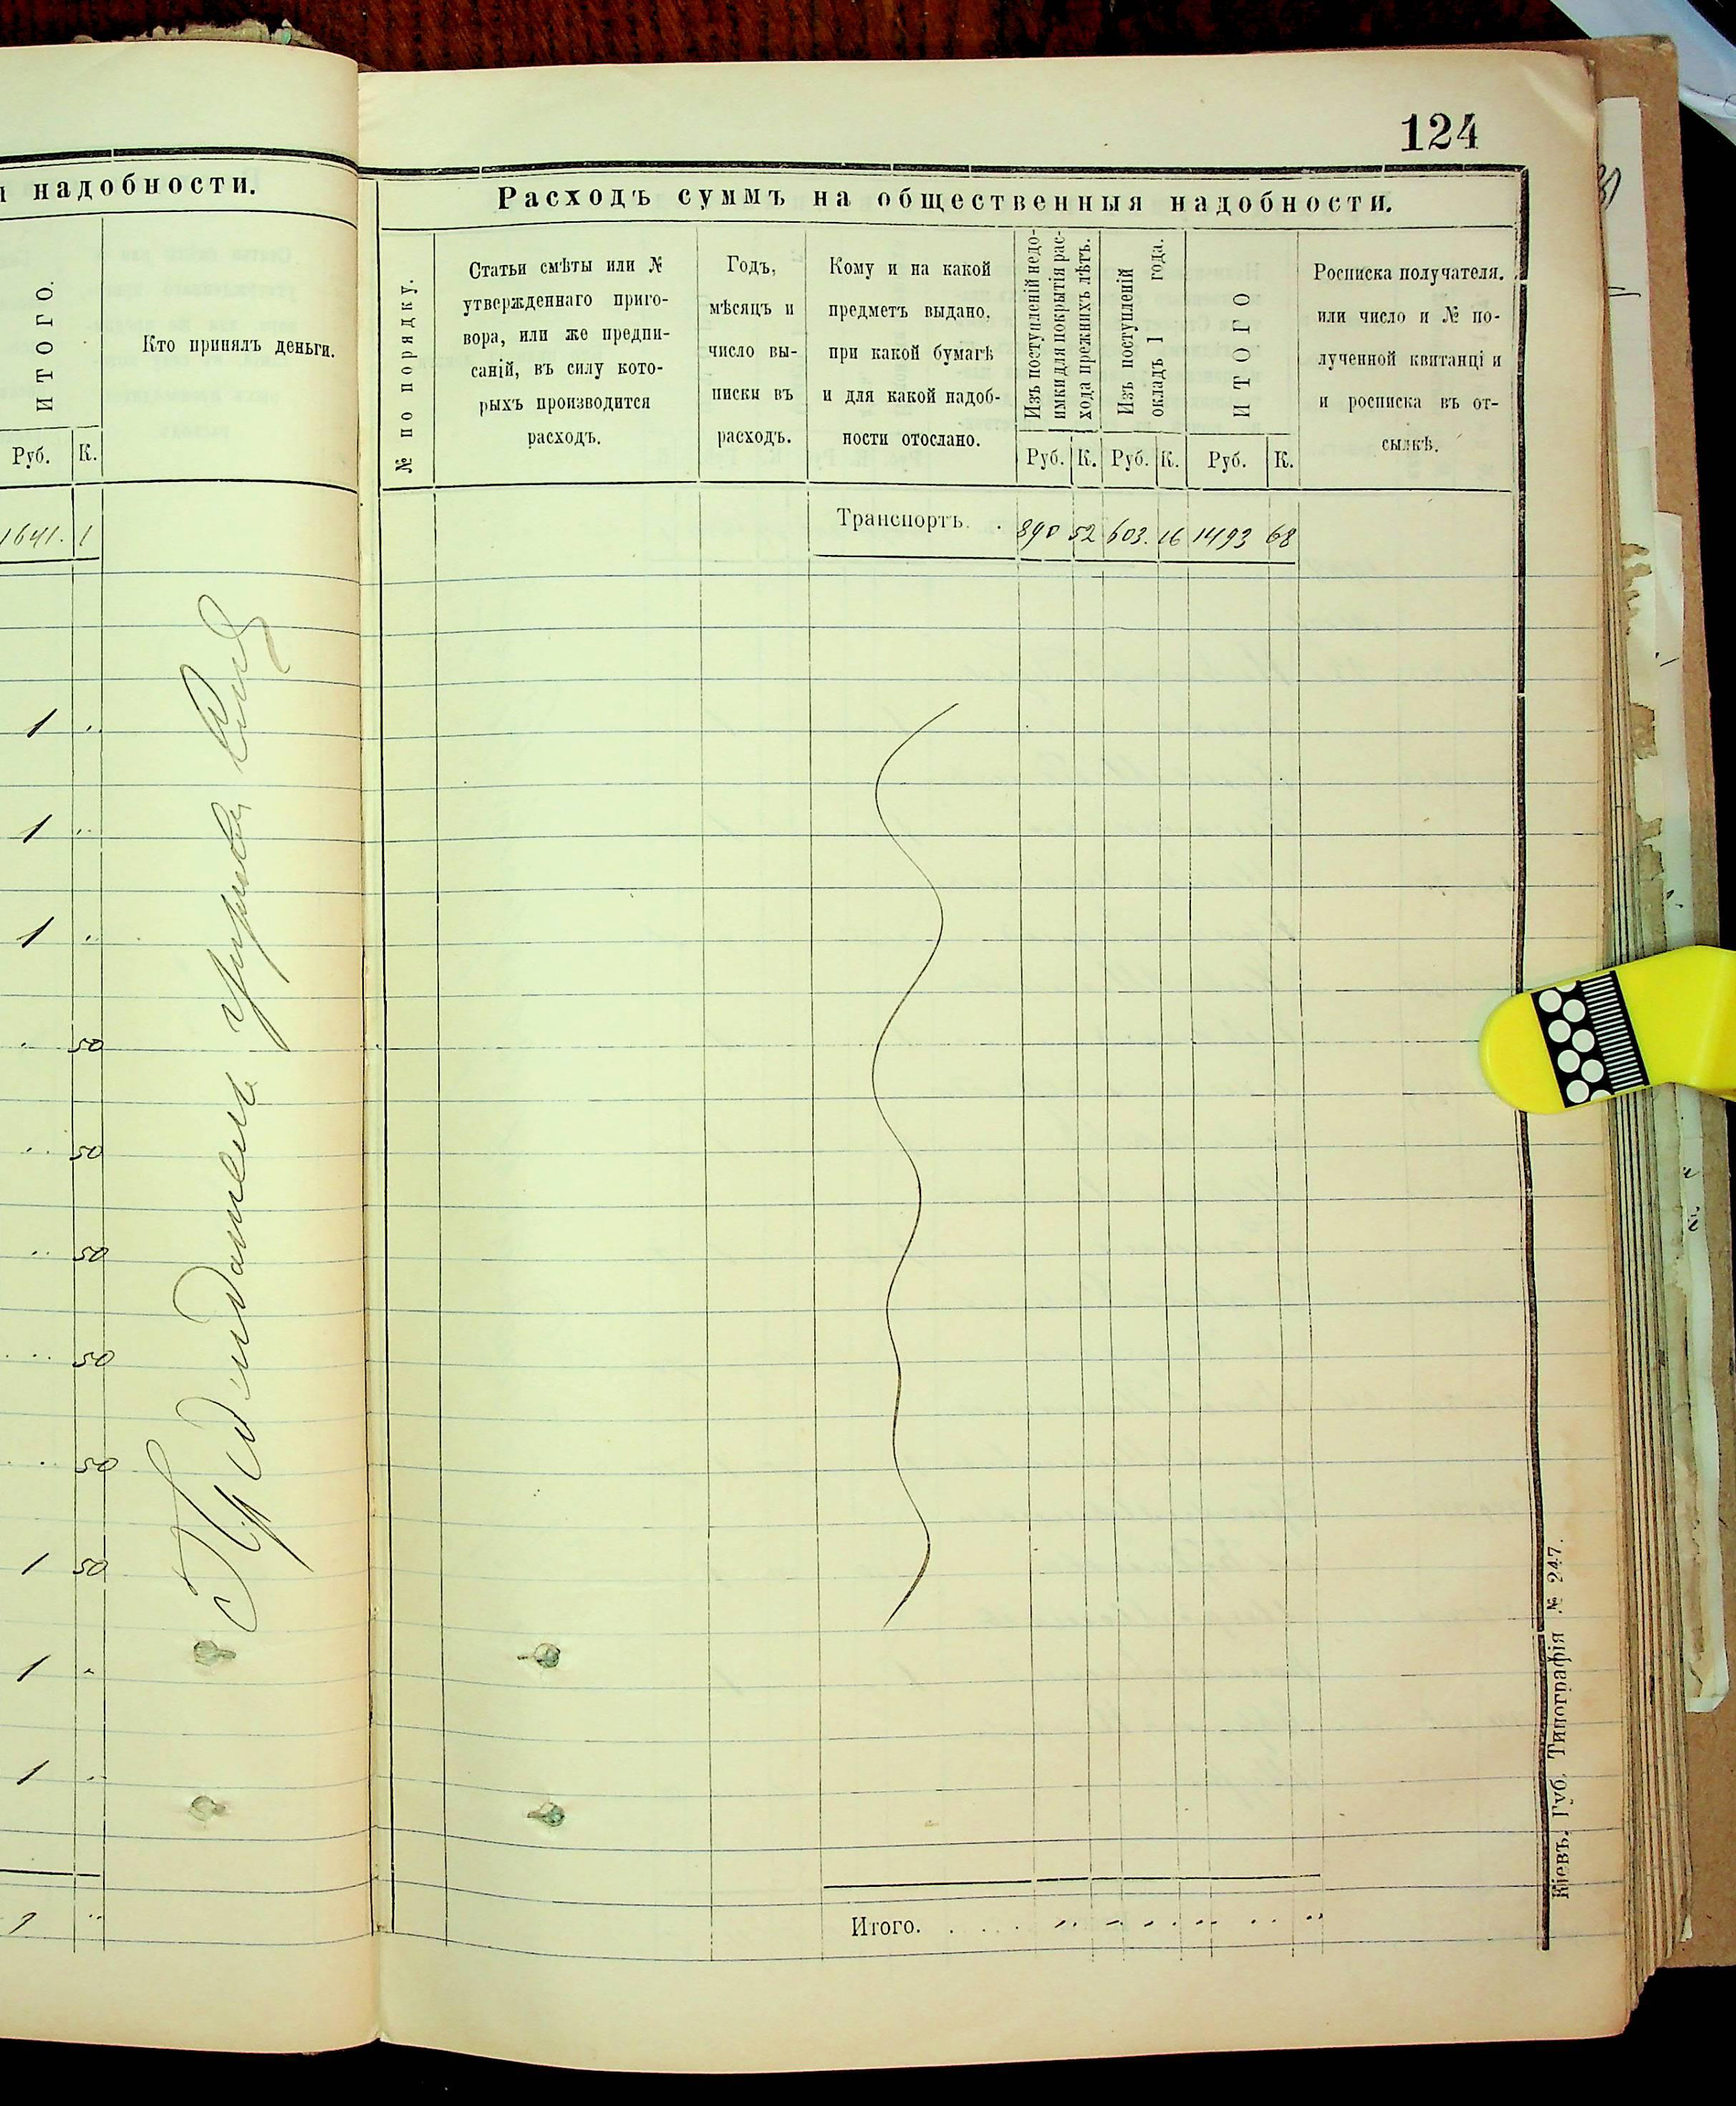 и надобности.
ИТОГО.
Кто принялъ деньги.
Руб. К.
1641. 1
1 ..
1 ..
1 ..
. 50
.. 50
.. 50
... 50
. . 50
1 50
1 "
1 ..
Предсѣдатель управы
124
Расходъ суммъ на общественныя надобности.
№ по порядку.
Статьи смѣты или №
утвержденнаго приго-
вора, или же предпи-
саній, въ силу кото-
рыхъ производится
расходъ.
Годъ,
мѣсяцъ и
число вы-
писки въ
расходъ.
Кому и на какой
предметъ выдано,
при какой бумагѣ
и для какой надоб-
ности отослано.
Изъ поступленій недо-
имки для покрытія рас-
хода прежнихъ лѣтъ.
Изъ поступленій
окладъ 1 года.
ИТОГО
Росписка получателя,
или число и № по-
лученной квитанці и
и росписка въ от-
сылкѣ.
Руб. К. Руб. К. Руб. К.
Транспортъ. . 890 52 603. 16 1493 68
Итого. . . . .
Кіевъ, Губ. Типографія № 247.